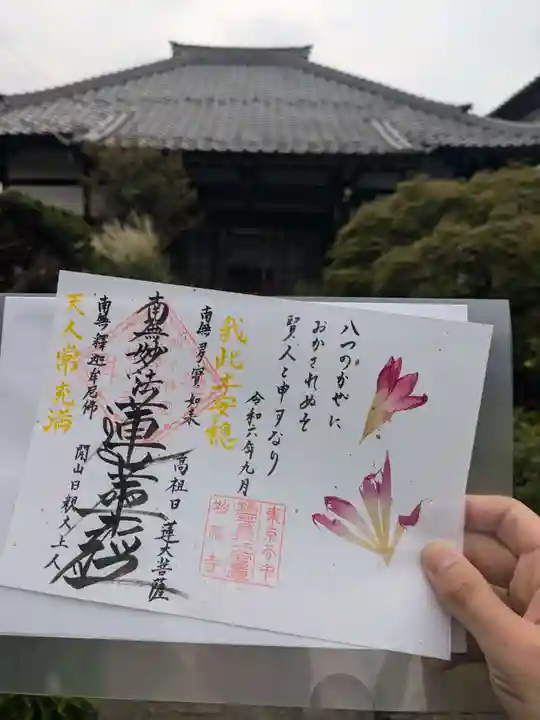 八つのかぜに
おかされぬを
賢人と申すなり
令和六年九月
我此土安穏
南無多宝如来
南無妙法蓮華経
高祖日蓮大菩薩
南無釈迦牟尼佛
開山日親大上人
天人常充満
東京府中
妙
寺